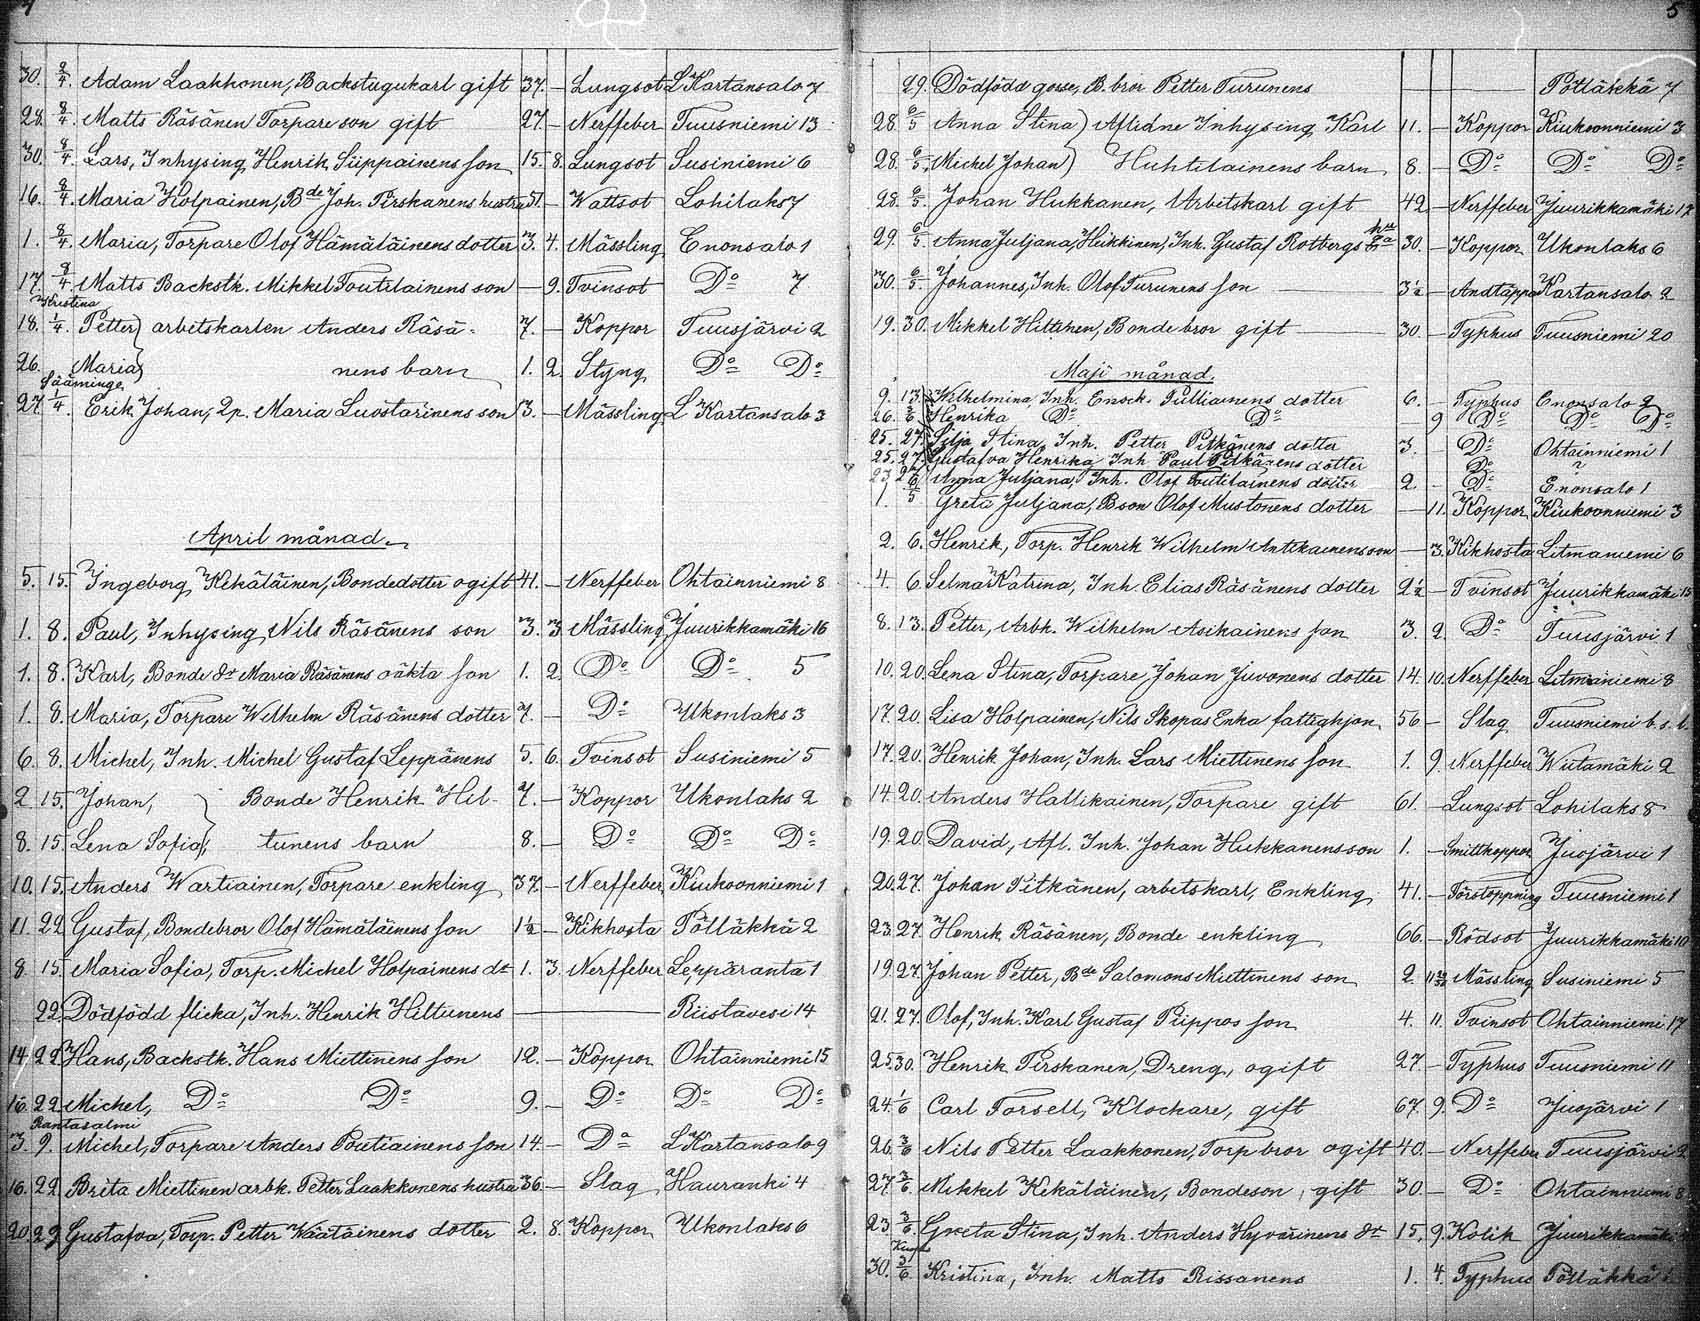 4
30. 2/4. Adam Laakkonen, Backstugukarl gift 37. — Lungsot L Kartansalo 7
28. 8/4. Matts Räsänen Torpareson gift 27. — Nerffeber Tuusniemi 13
30. 8/4. Lars, Inhysing Henrik Siippainens son 15. 8. Lungsot Susiniemi 6
16. 8/4. Maria Holpainen, Bde Joh. Pirskanens hustru 51. — Wattsot Lohilaks 7
1. 8/4. Maria, Torpare Olof Hämäläinens dotter 3. 4. Mässling Enonsalo 1
17. 8/4. Matts Backstk. Mikkel Toutilainens son — 9. Tvinsot Do 7
Kristina
18. 1/4. Petter) arbetskarlen Anders Räsä- 7. — Koppor Tuusjärvi 2
26. Maria) nens barn 1. 2. Styng Do Do
Sääminge
27. 1/4. Erik Johan, Qp. Maria Luostarinens son 3. — Mässling L Kartansalo 3
April månad.
5. 15. Ingeborg Kekäläinen, Bondedotter ogift 41. — Nerffeber Ohtainniemi 8
1. 8. Paul, Inhysing Nils Räsänens son 3. 3 Mässling Juurikkamäki 16
1. 8. Karl, Bonde dr Maria Räsänens oäkta son 1. 2. Do Do 5
1. 8. Maria, Torpare Wilhelm Räsänens dotter 7. — Do Ukonlaks 3
6. 8. Michel, Inh. Michel Gustaf Leppänens 5. 6. Tvinsot Susiniemi 5
2 15. Johan, ) Bonde Henrik Hil- 7. — Koppor Ukonlaks 2
8. 15. Lena Sofia, ) tunens barn 8. — Do Do Do
10. 15. Anders Wartiainen, Torpare enkling 37. — Nerffeber Kiukoonniemi 1
11. 22 Gustaf, Bondebror Olof Hämäläinens son 1½ — Kikhosta Pölläkkä 2
8. 15. Maria Sofia, Torp. Michel Holpainens dr 1. 3. Nerffeber Leppäranta 1
22. Dödfödd flicka, Inh. Henrik Hiltunens — Riistavesi 14
14. 22. Hans, Backstk. Hans Miettinens son 12. — Koppor Ohtainniemi 15
16. 22 Michel, Do Do 9. — Do Do Do
Rantasalmi
3. 9. Michel, Torpare Anders Poutiainens son 14. — Do L Kartansalo 9
16. 22. Brita Miettinen arbk. Petter Laakkonens hustru 36. — Slag Hauranki 4
20. 29 Gustafva, Torp. Petter Wäätäinens dotter 2. 8. Koppor Ukonlaks 6
5
29. Dödfödd gosse, B. bror Petter Turunens — Pölläkkä 7
28. 6/5 Anna Stina) Aflidne Inhysing Karl 11. — Koppor Kiukoonniemi 3
28. 6/5. Michel Johan) Huhtilainens barn 8. — Do Do Do
28. 6/5. Johan Hukkanen, Arbetskarl gift 42 — Nerffeber Juurikkamäki 17
29. 6/5 Anna Juljana, Heikkinen, Inh. Gustaf Rotbergs hu 30. — Koppor Ukonlaks 6
30. 6/5. Johannes, Inh. Olof Turunens son 3½ — Andtäppa Kartansalo 2
19. 30. Mikkel Hiltunen, Bonde bror gift 30 — Typhus Tuusniemi 20
Maji månad.
9. 13. Wilhelmina, Inh. Enock. Pulliainens dotter 6. — Typhus Enonsalo 2
26. Henrika Do Do — 9 Do Do Do
25. 27. Silja Stina, Inh. Petter Pitkänens dotter 3. — Do Ohtainniemi 1
25. 27. Gustafva Henrika Inh. Paul Pitkänens dotter Do
23 27 Anna Juljana, Inh. Olof Toutilainens dotter 2. — Do Enonsalo 1
1. 6/5 Greta Juljana, Bson Olof Mustonens dotter — 11. Koppor Kiukoonniemi 3
2. 6. Henrik, Torp. Henrik Wilhelm Antikainens son — 3. Kikhosta Litmaniemi 6
4. 6. Selma Katrina, Inh. Elias Räsänens dotter 2½ — Tvinsot Juurikkamäki 15
8. 13. Petter, Arbk. Wilhelm Asikainens son 3. 2. Do Tuusjärvi 1
10. 20. Lena Stina, Torpare Johan Juvonens dotter 14. 10. Nerffeber Litmaniemi 8
17. 20. Lisa Holpainen, Nils Skopas Enka fattighjon 56 — Slag Tuusniemi b. s.
17. 20. Henrik Johan, Inh. Lars Miettinens son 1. 9. Nerffeber Wiitamäki 2
14. 20. Anders Hallikainen, Torpare gift 61. — Lungsot Lohilaks 8
19. 20. David, Afl. Inh. Johan Hukkanens son 1. — Smittkoppor Juojärvi 1
20. 27. Johan Pitkänen, arbetskarl, Enkling 41. — Förstoppning Tuusniemi 1
23. 27. Henrik Räsänen, Bonde enkling 66. — Rödsot Juurikkamäki 10
19. 27. Johan Petter, Bde Salomons Miettinens son 2 11 Mässling Susiniemi 5
21. 27. Olof, Inh. Karl Gustaf Piippos son 4. 11. Tvinsot Ohtainniemi 17
25. 30. Henrik Pirskanen, Dreng, ogift 27. — Typhus Tuusniemi 11
24. 1/6 Carl Forsell, Klockare, gift 67. 9. Do Juojärvi 1
26. 3/6 Nils Petter Laakkonen, Torp bror ogift 40. — Nerffeber Tuusjärvi 2
27. 3/6 Mikkel Kekäläinen, Bondeson, gift 30. — Do Ohtainniemi 8
23. 3/6. Greta Stina, Inh. Anders Hyvärinens dr 15. 9. Kolik Juurikkamäki
30. 3/6 Kristina, Inh. Matts Rissanens 1. 4. Typhus Pölläkkä